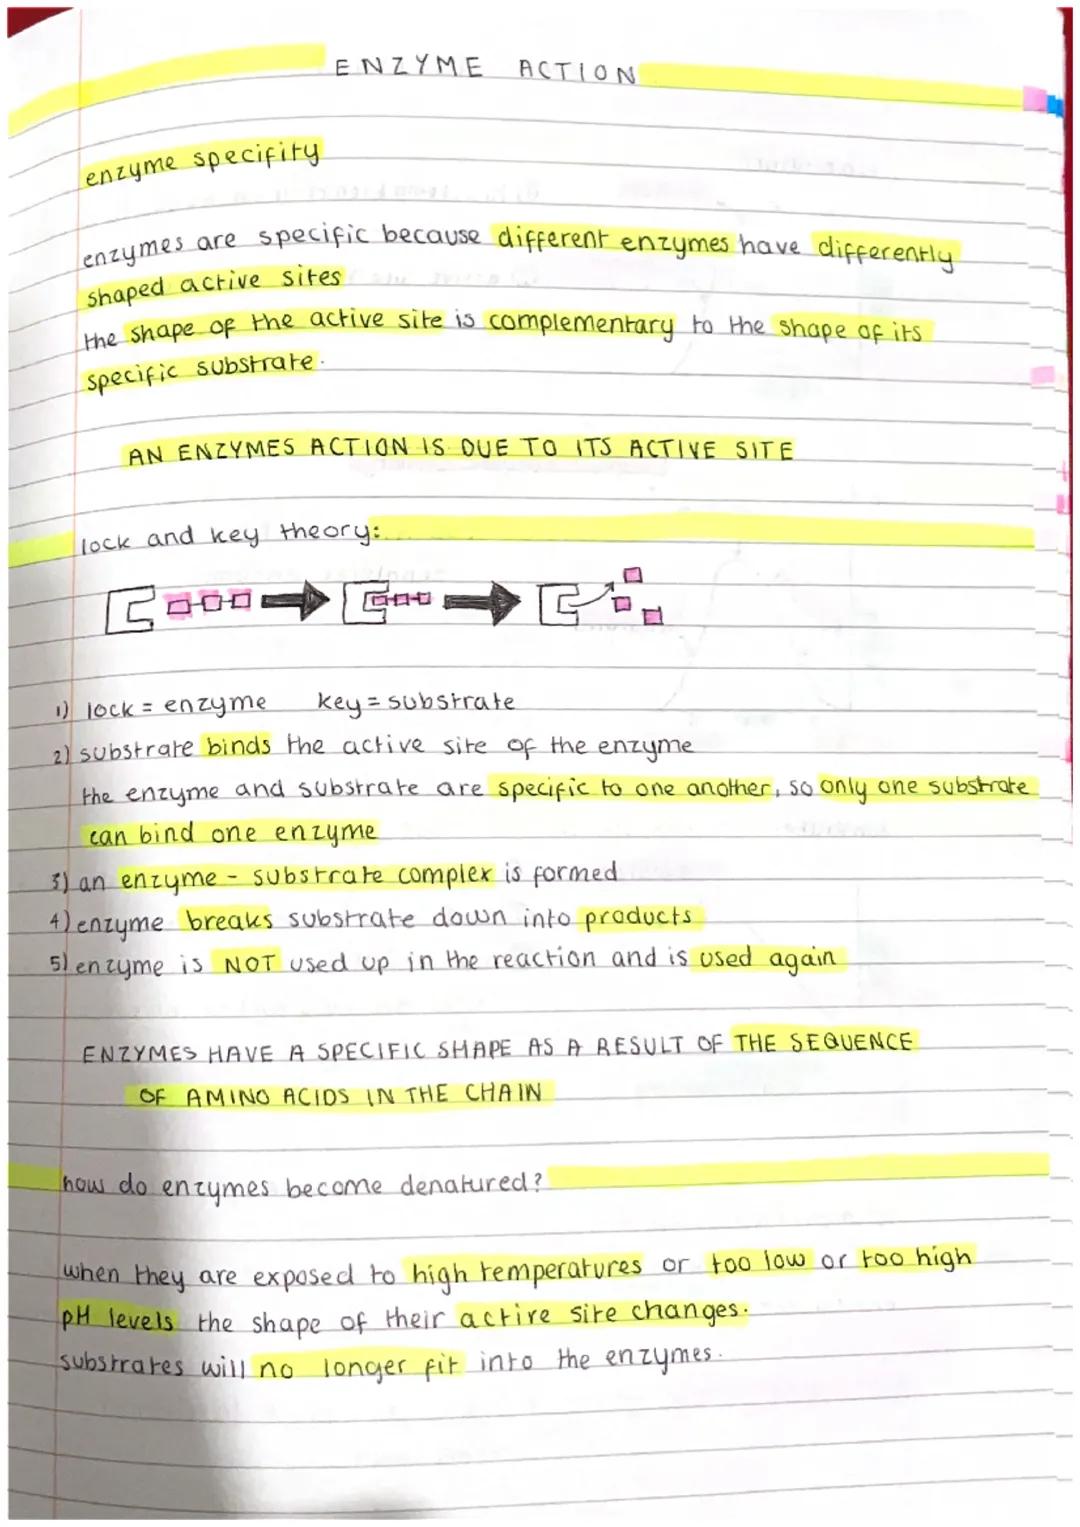 ENZYME ACTION
enzyme specifity
enzymes are specific because different enzymes have differently
shaped active sites
the shape of the active site is complementary to the shape of its
specific substrate.
AN ENZYMES ACTION IS DUE TO ITS ACTIVE SITE
lock and key theory:
1) lock = enzyme key = substrate
2) substrate binds the active site of the enzyme
the enzyme and substrate are specific to one another, so only one substrate
can bind one enzyme
3) an enzyme - substrate complex is formed
4) enzyme breaks substrate down into products
5) enzyme is NOT used up in the reaction and is used again
ENZYMES HAVE A SPECIFIC SHAPE AS A RESULT OF THE SEQUENCE
OF AMINO ACIDS IN THE CHAIN
how do enzymes become denatured?
when they are exposed to high temperatures or too low or too high
pH levels the shape of their active site changes.
substrates will no longer fit into the enzymes.